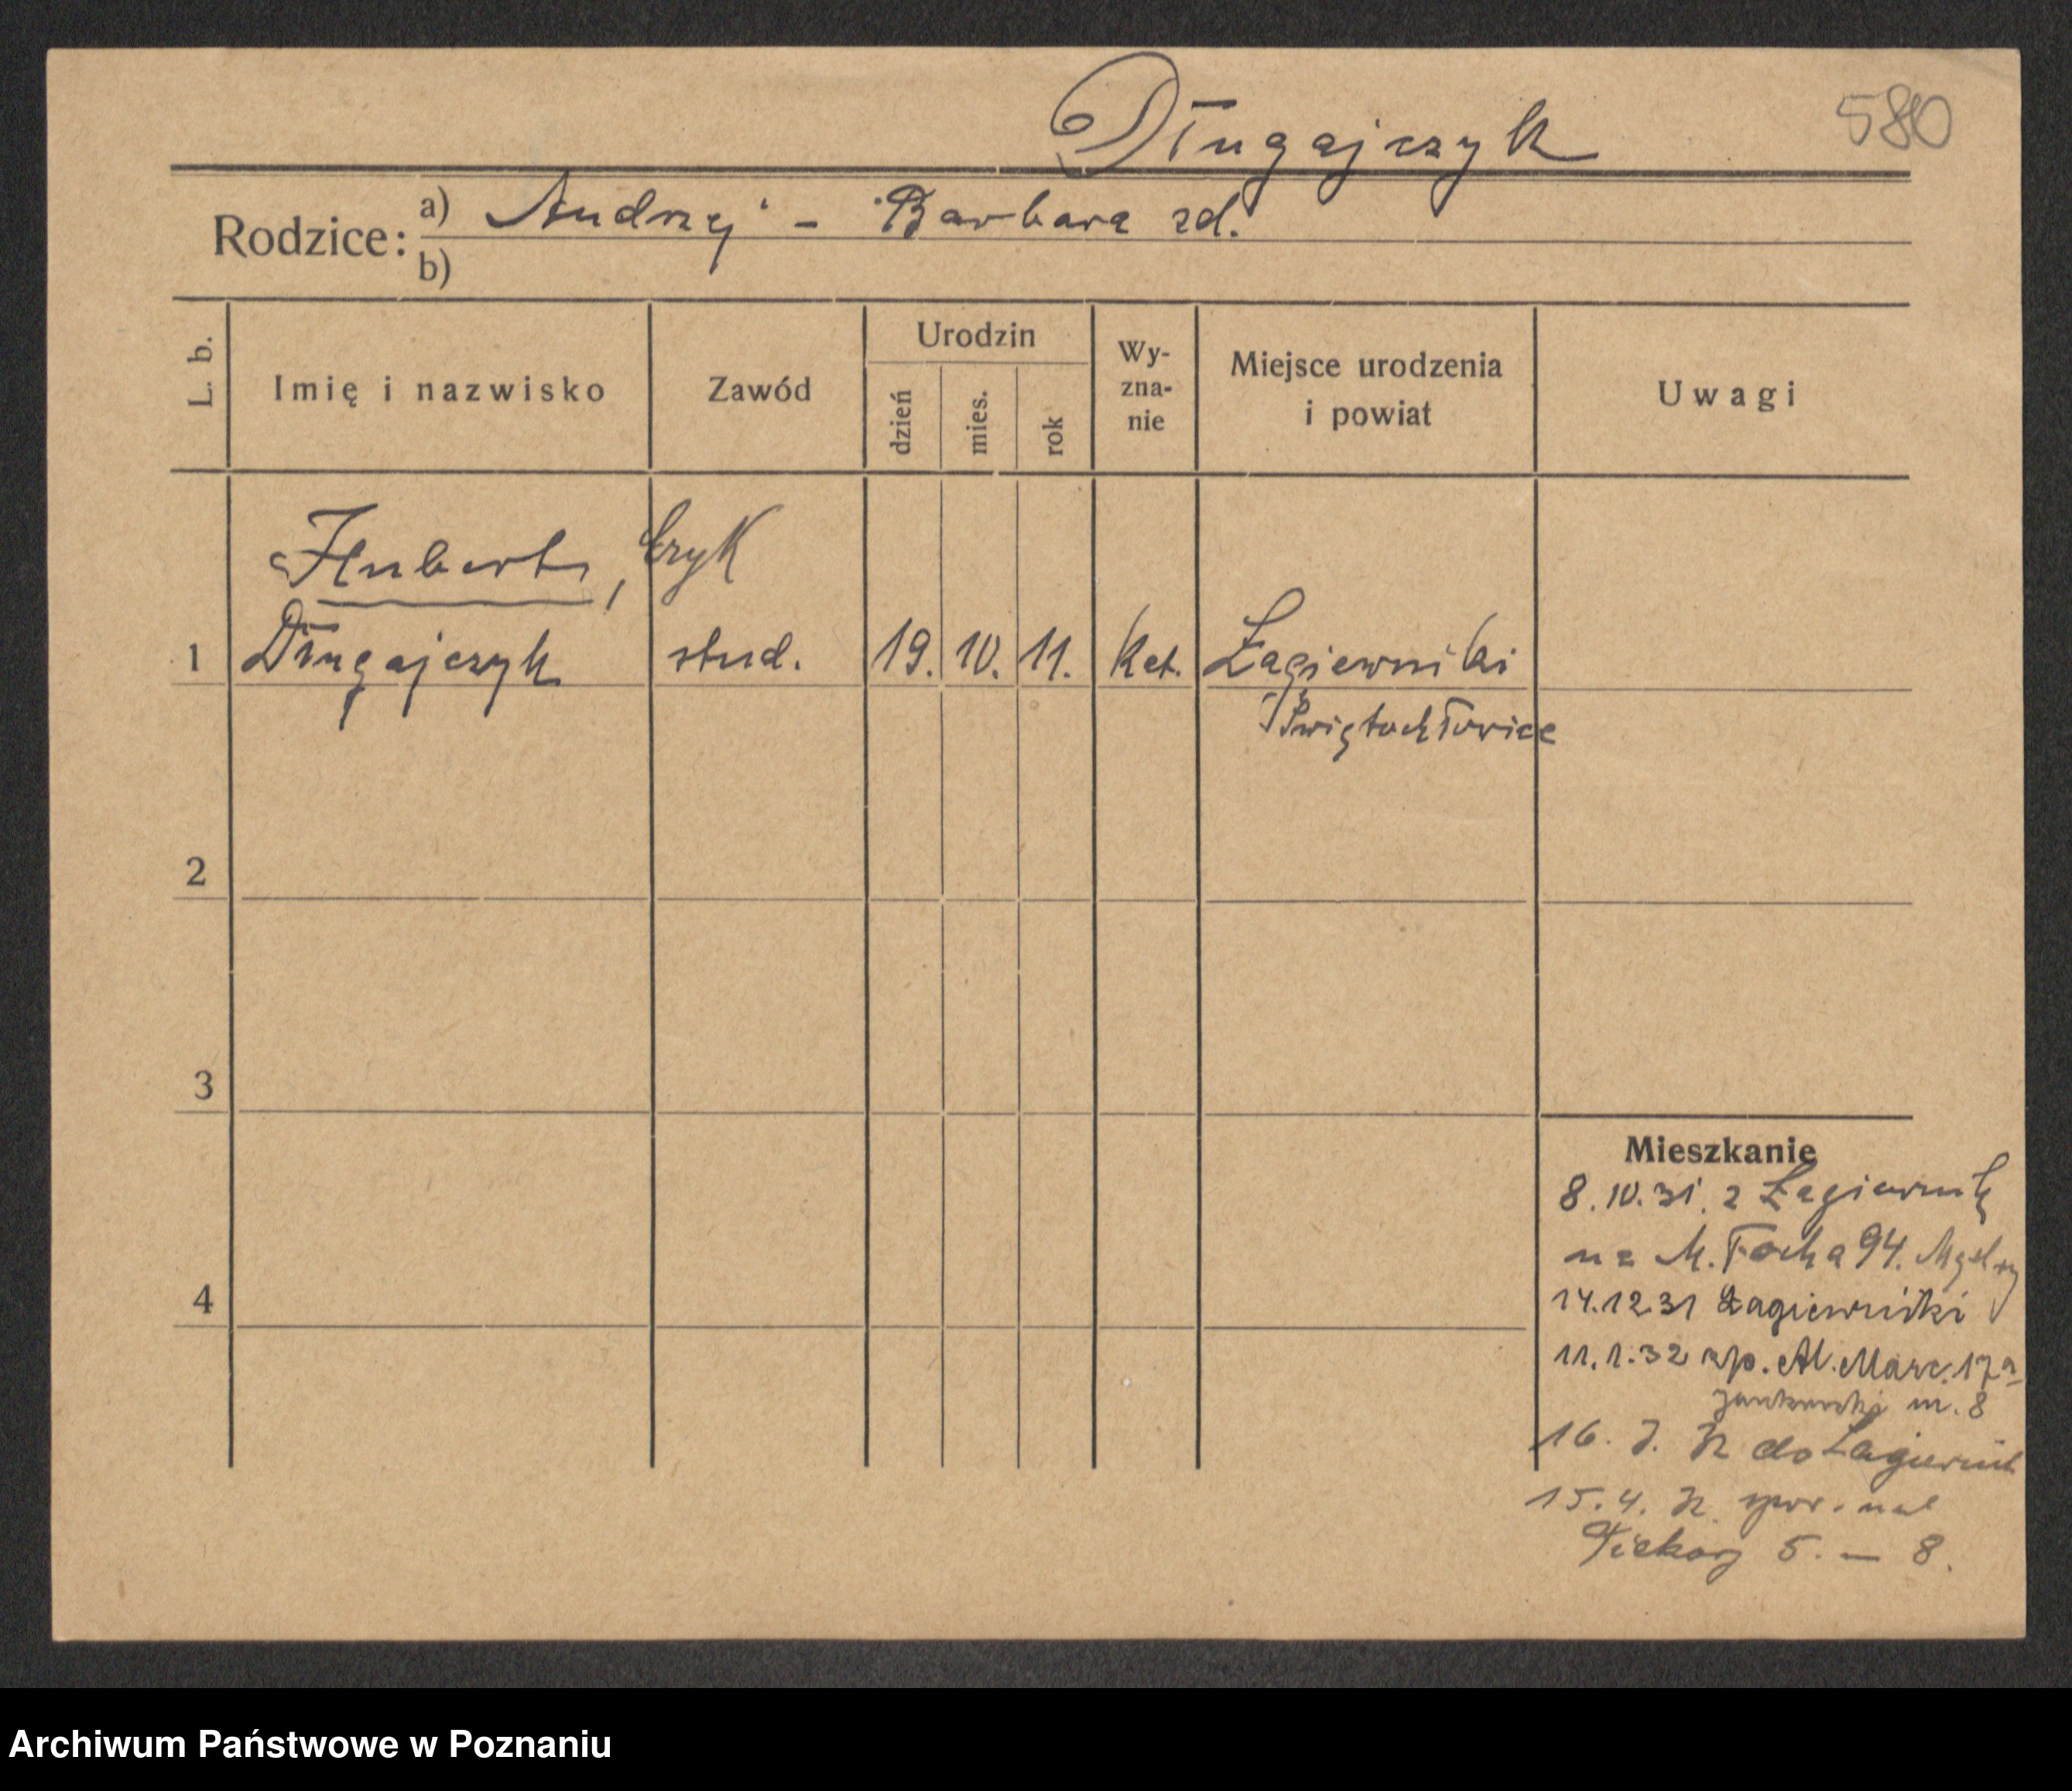 Długajczyk
580
Rodzice:
a) Andrzej - Barbara zd.
b)
L. b.
Imię i nazwisko
Zawód
Urodzin
dzień
mies.
rok
Wy-
zna-
nie
Miejsce urodzenia
i powiat
Uwagi
Hubert, Eryk
1 Długajczyk stud. 19. 10. 11. kat. Łagiewniki
Świętochłowice
2
3
4
Mieszkanie
8.10.31. z Łagiewnik
na M. Focha 94.
14.12.31 Łagiewniki
11.1.32 zp. Al. Marc. 17a
m. 8
16. 3. 32 do Łagiewnik
15.4.32.
Piekary 5. — 8.
Archiwum Państwowe w Poznaniu